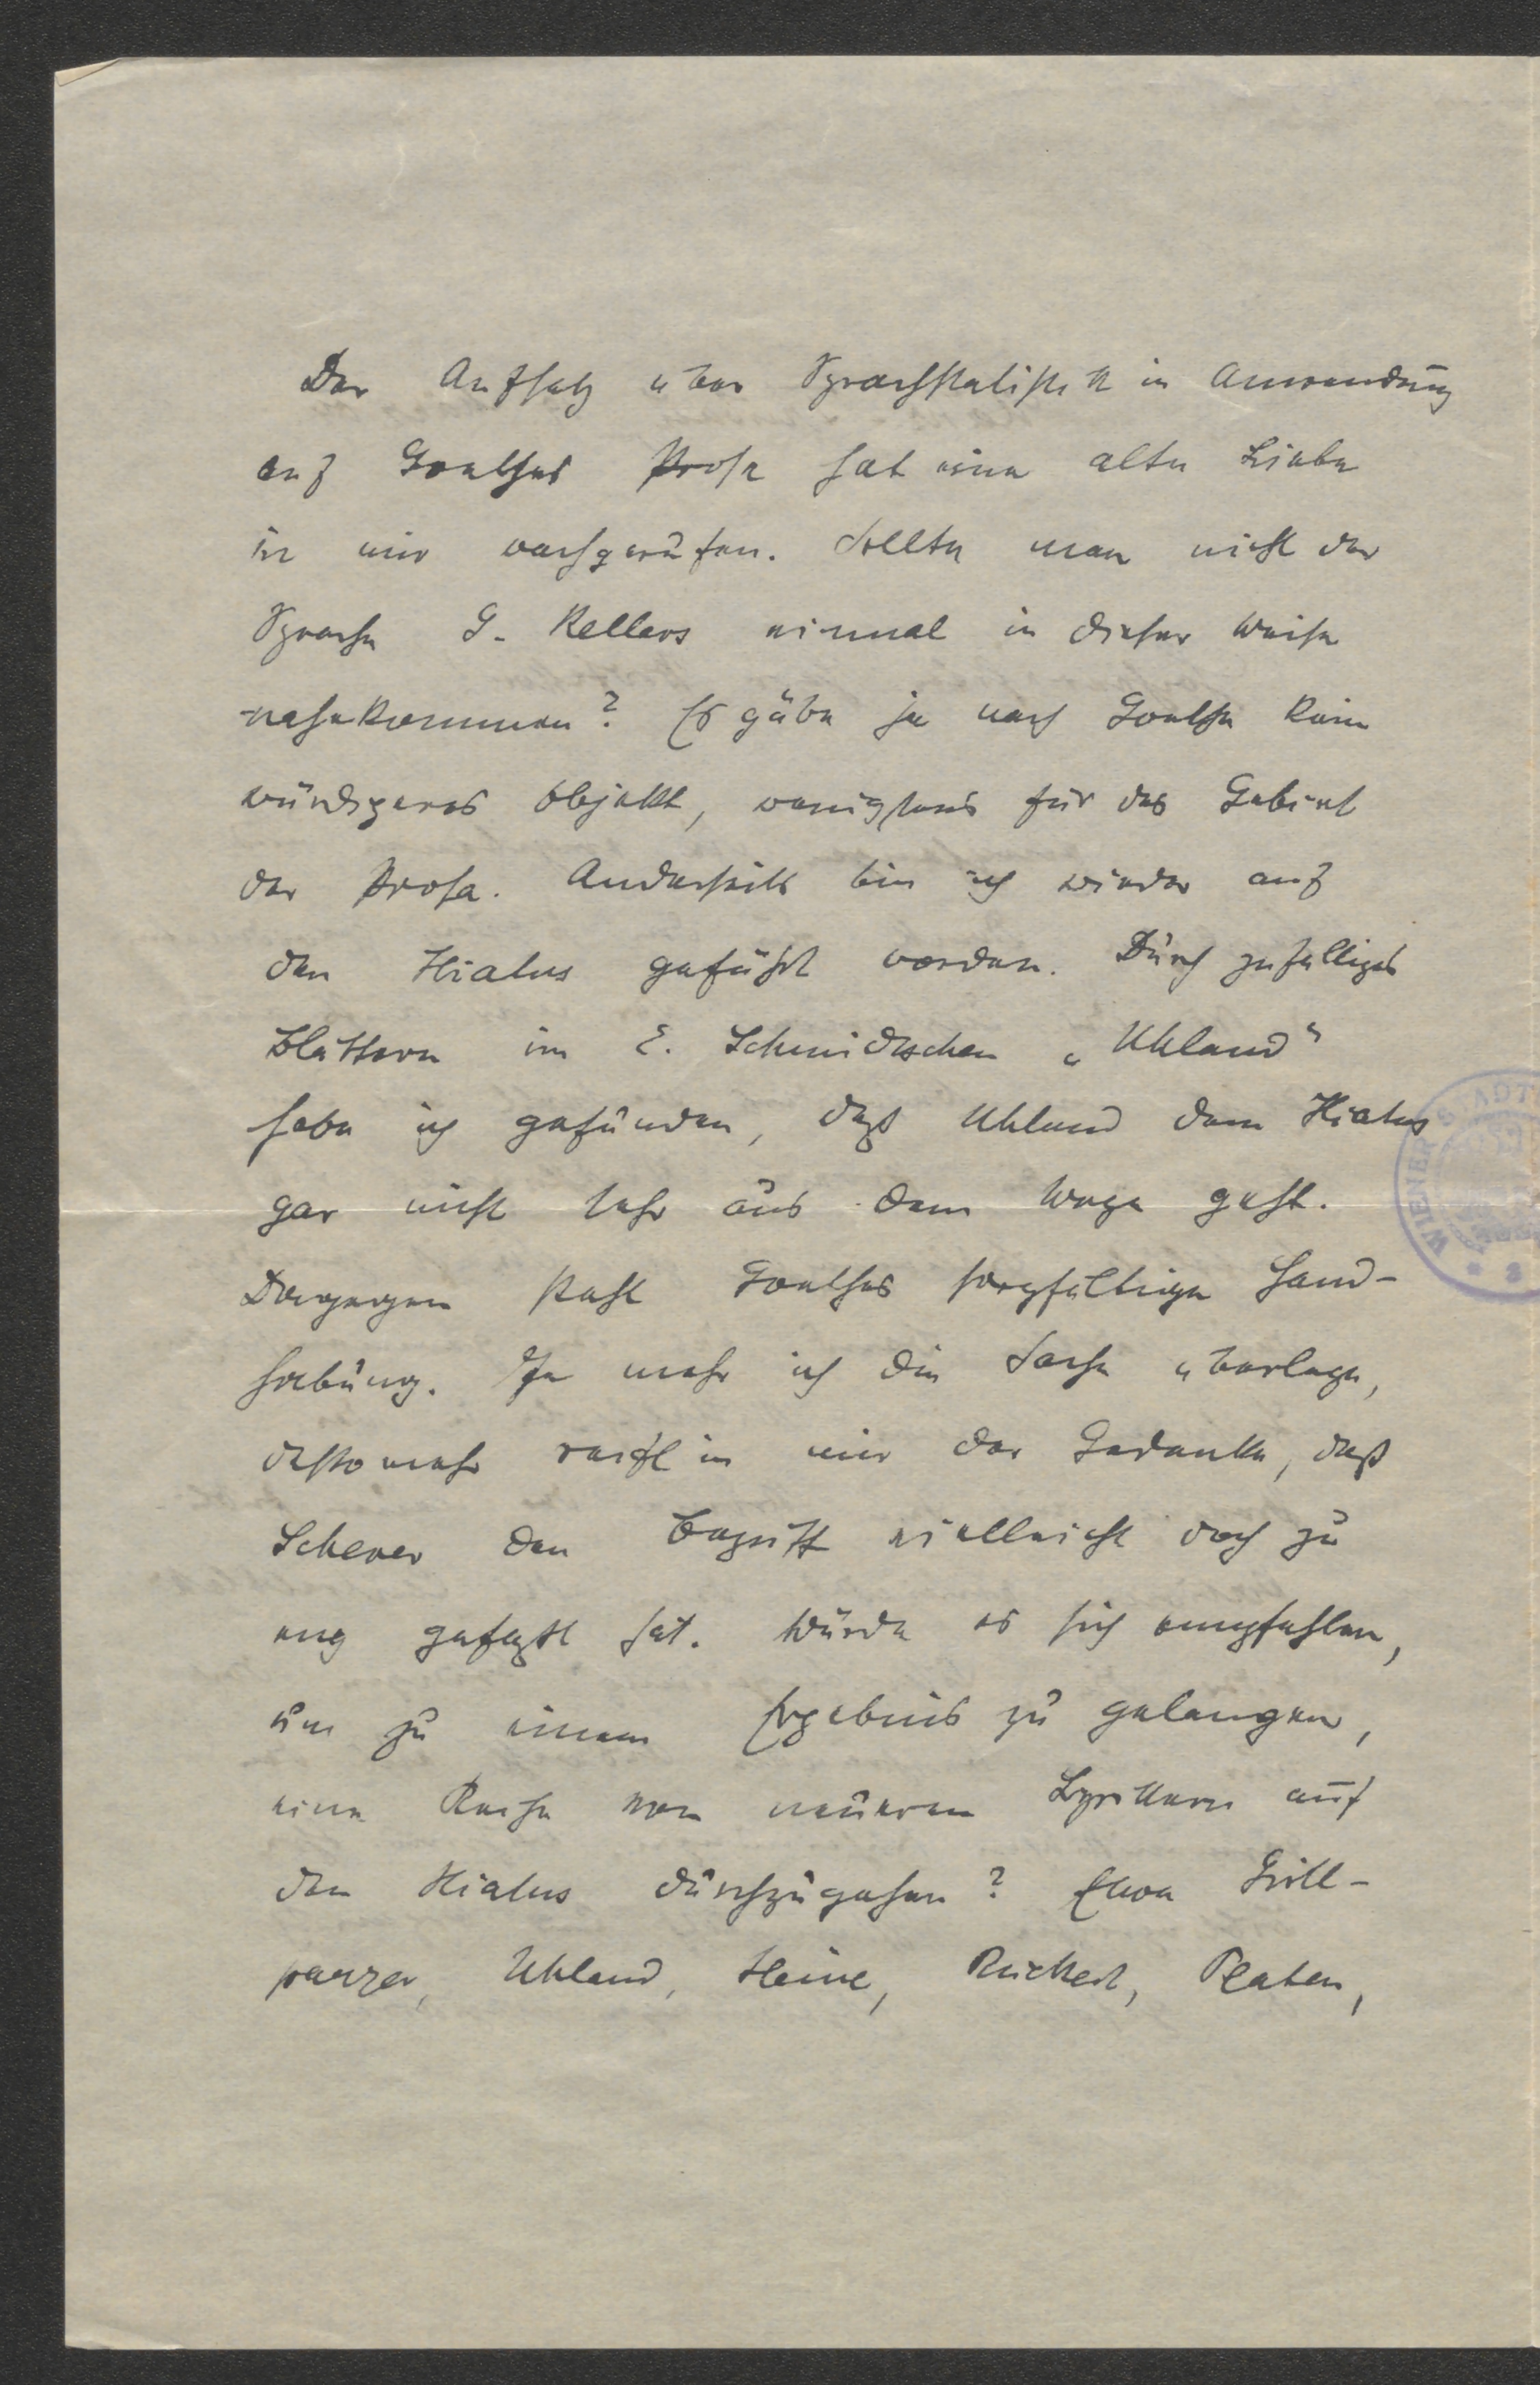 Der Aufsatz über Sprachstatistik in Anwendung
auf Goethes Prosa hat eine alte Liebe
in mir wachgerufen. Sollte man nicht der
Sprache G. Kellers einmal in dieser Weise
nahekommen? Es gäbe ja nach Goethe kein
würdigeres Objekt, wenigstens für das Gebiet
der Prosa. Anderseits bin ich wieder auf
den Hiatus geführt worden. Durch zufälliges
Blättern im E. Schmidtschen „Uhland“
habe ich gefunden, daß Uhland dem Hiatus
gar nicht sehr aus dem Wege geht.
Dagegen steht Goethes sorgfältige Hand-
habung. Je mehr ich die Sache überlege,
destomehr reift in mir der Gedanke, daß
Scherer den Begriff vielleicht doch zu
eng gefaßt hat. Würde es sich empfehlen,
um zu einem Ergebnis zu gelangen,
eine Reihe von neueren Lyrikern auf
den Hiatus durchzugehen? Etwa Grill-
parzer, Uhland, Heine, Rückert, Platen,
WIENER STADT